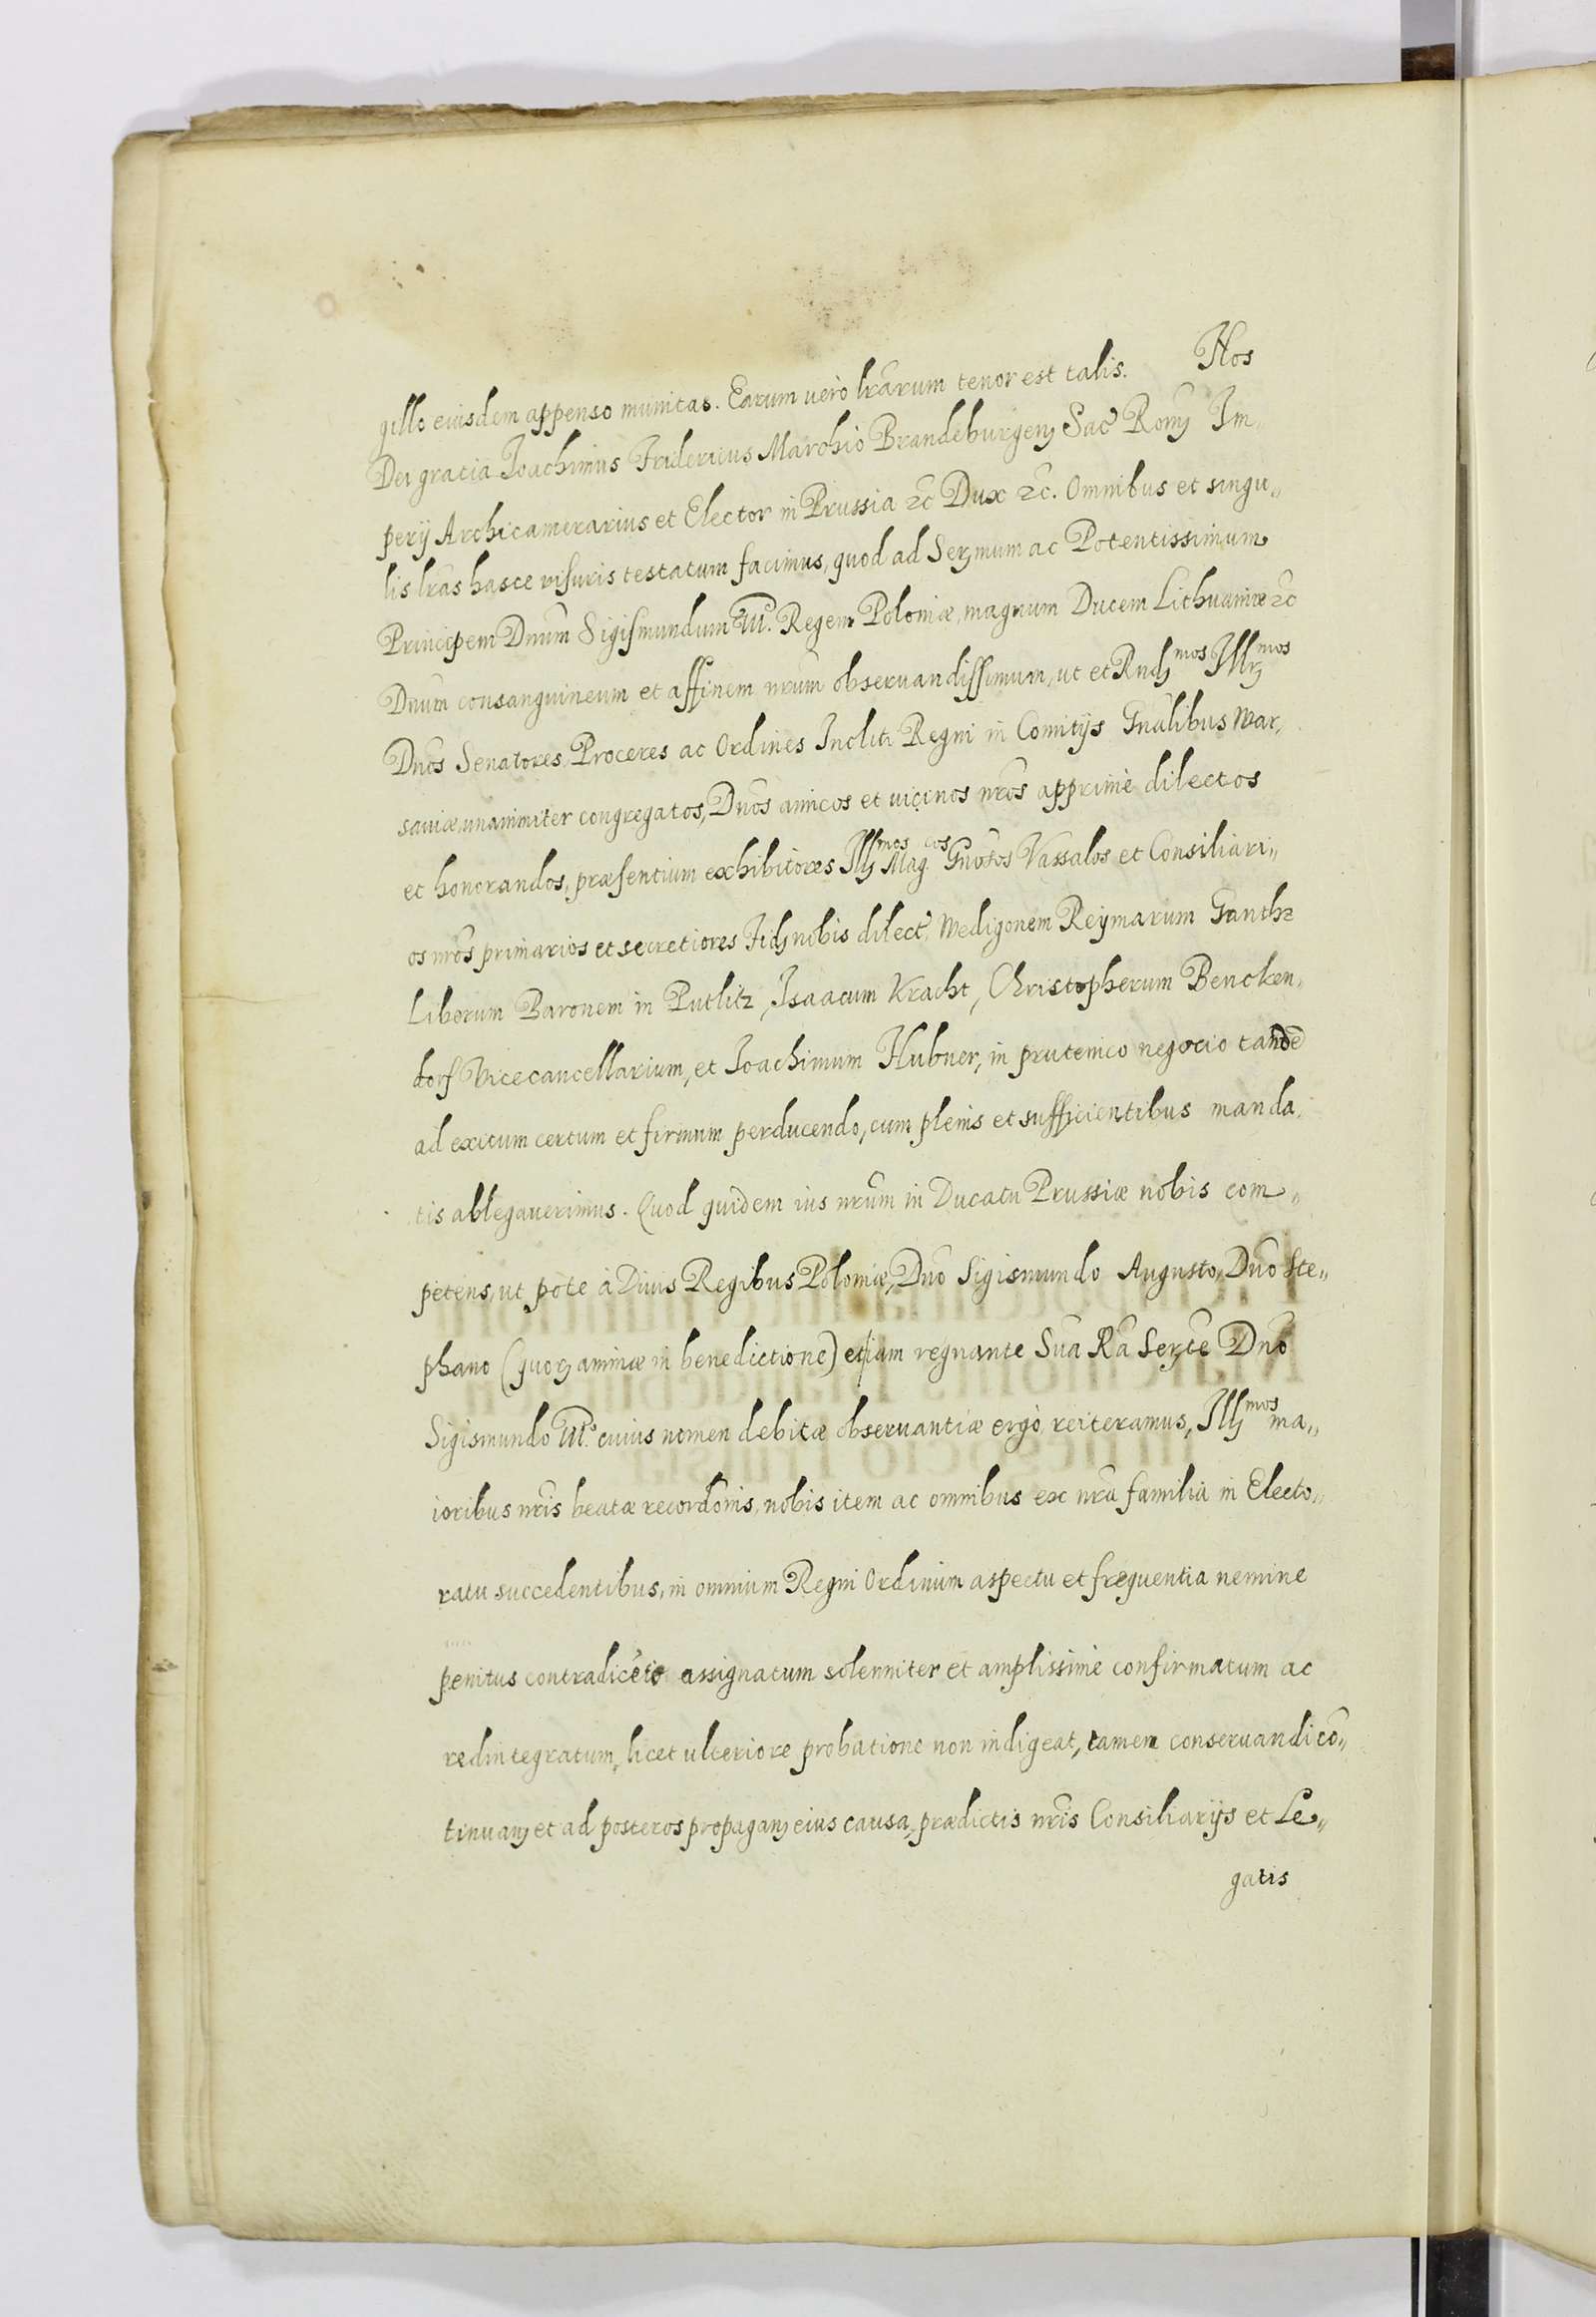 gillo eiusdem appenso munitas. Earum verò lrārum tenor est talis. Nos
Dei gratia Ioachimus Fridericus Marchio Brandeburgenʒ Sac Romʒ Im„
perij Archicamerarius et Elector in Prussia ꝛc Dux ꝛc. Omnibus et singu„
lis lrās hasce visuris testatum facimus, quod ad Serʒmum ac Potentissimum
Principem Dnūm Sigismundum III. Regem Poloniæ, magnum Ducem Lithuaniæ ꝛc
Dnūm consanguineum et affinem nrūm obseruandissimum, ut et Rndʒmos Illrʒmos
Dnōs Senatores Proceres ac Ordines Incliti Regni in Comitijs Gnālibus War„
sauiæ unanimiter congregatos, Dnōs amicos et uicinos nrōs apprimè dilectos
et honorandos, præsentium exhibitores Illʒmos Mag.cos Gnōsos Vassalos et Consiliari„
os nrōs primarios et secretiores Fidʒ nobis dilect, Wedigonem Reymarum Ganthz
Liberum Baronem in Putlitz, Isaacum Kracht, Christopherum Bencken„
dorf Vicecancellarium, et Ioachimum Hubner, in prutenico negocio tandē
ad exitum certum et firmum perducendo, cum plenis et sufficientibus manda„
tis ablegauerimus. Quod quidem ius nrūm in Ducatu Prussiæ nobis com„
petens, ut pote à Diuis Regibus Poloniæ, Dnō Sigismundo Augusto, Dnō Ste„
phano (quorʒ animæ in benedictione) et iam regnante Sua Rā Serʒte Dnō
Sigismundo III. cuius nomen debitæ obseruantiæ ergò reiteramus, Illʒmos ma„
ioribus nrīs beatæ recordōnis, nobis item ac omnibus ex nrā familia in Electo„
ratu succedentibus, in omnium Regni Ordinum aspectu et frequentia nemine
penitus contradicēte assignatum solenniter et amplissimè confirmatum ac
redintegratum, licet ulteriore probatione non indigeat, tamen conseruandi cō„
tinuanʒ et ad posteros propaganʒ eius causa, prædictis nrīs Consiliarijs et Le„
gatis